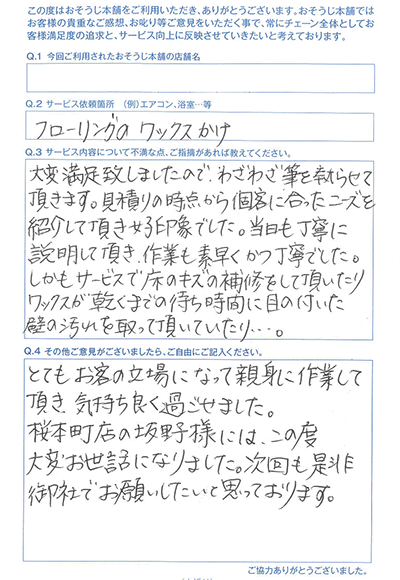 この度はおそうじ本舗をご利用いただき、ありがとうございます。おそうじ本舗では
お客様の貴重なご感想、お叱り等ご意見をいただく事で、常にチェーン全体としてお
客様満足度の追求と、サービス向上に反映させていきたいと考えております。
Q.1 今回ご利用されたおそうじ本舗の店舗名
Q.2 サービス依頼箇所 (例)エアコン、浴室…等
フローリングの ワックスかけ
Q.3 サービス内容について不満な点、ご指摘があれば教えてください。
大変満足致しましたので、わざわざ筆を執らせて
頂きます。見積りの時点から個客に合ったニーズを
紹介して頂き好印象でした。当日も丁寧に
説明して頂き、作業も素早くかつ丁寧でした。
しかもサービスで床のキズの補修をして頂いたり
ワックスが乾くまでの待ち時間に目の付いた
壁の汚れを取って頂いていたり…。
Q.4 その他ご意見がございましたら、ご自由にご記入ください。
とてもお客の立場になって親身に作業して
頂き、気持ち良く過ごせました。
桜本町店の坂野様には、この度
大変お世話になりました。次回も是非
御社でお願いしたいと思っております。
ご協力ありがとうございました。